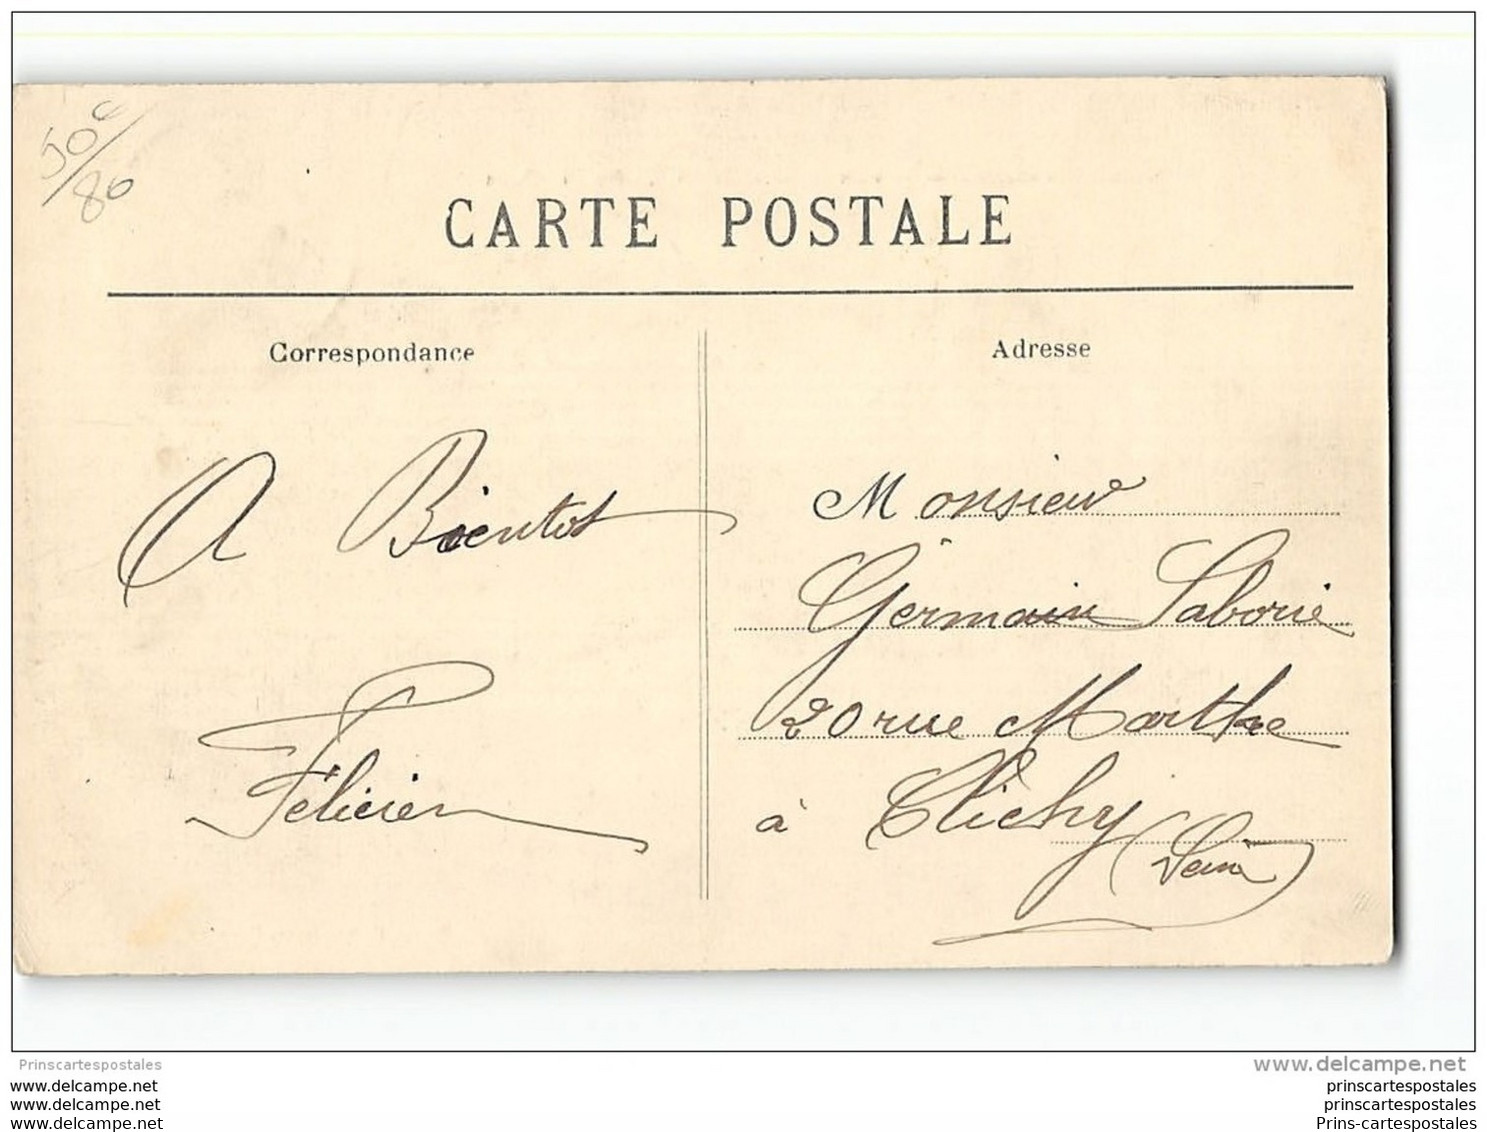 50c/80
CARTE POSTALE
Correspondance
Adresse
A Bientot
Félicien
Monsieur
Germain Laborie
20 rue Marthe
à Clichy
(Seine)
Prinscartespostales
www.delcampe.net
www.delcampe.net
www.delcampe.net
www.delcampe.net
prinscartespostales
prinscartespostales
Prins-cartespostales